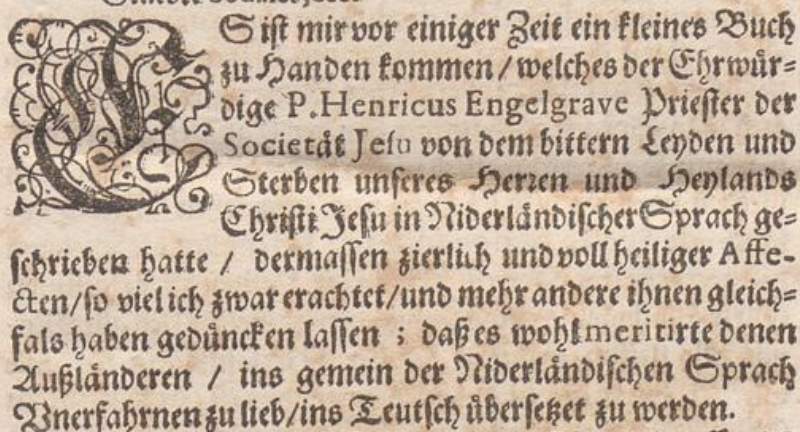 ES ist mir vor einiger Zeit ein kleines Buch
zu Handen kommen / welches der Ehrwür-
dige P. Henricus Engelgrave Priester der
Societät Jesu von dem bittern Leyden und
Sterben unseres Herren und Heylands
Christi Jesu in Niderländischer Sprach ge-
schrieben hatte / dermassen zierlich und voll heiliger Affe-
cten / so viel ich zwar erachtet / und mehr andere ihnen gleich-
fals haben geduncken lassen ; daß es wohl meritirte denen
Außländeren / ins gemein der Niderländischen Sprach
Vnerfahrnen zu lieb / ins Teutsch übersetzet zu werden.